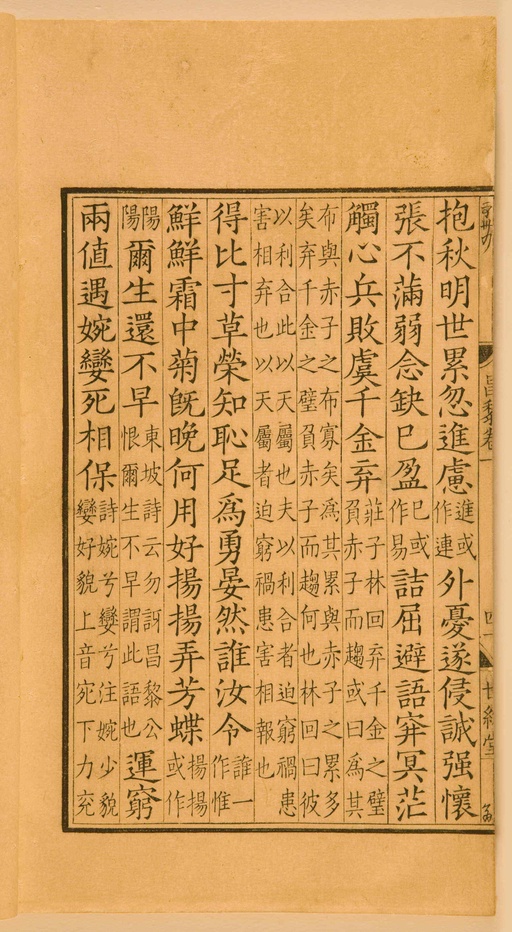 昌黎卷一
世綵堂
抱秋明世累忽進慮進或作連外憂遂侵誠强懷
張不滿弱念缺已盈已或作易詰屈避語穽冥茫
觸心兵敗虞千金弃莊子林回弃千金之璧負赤子而趨或曰爲其
布與赤子之布寡矣爲其累與赤子之累多矣弃千金之璧負赤子而趨何也林回曰彼
以利合此以天屬也夫以利合者迫窮禍患害相弃也以天屬者迫窮禍患害相報也
得比寸草榮知恥足爲勇晏然誰汝令誰一作惟
鮮鮮霜中菊旣晚何用好揚揚弄芳蝶揚揚或作
陽陽爾生還不早東坡詩云勿訝昌黎公恨爾生不早謂此語也運窮
兩值遇婉孌死相保詩婉兮孌兮注婉少貌孌好貌上音宛下力兖